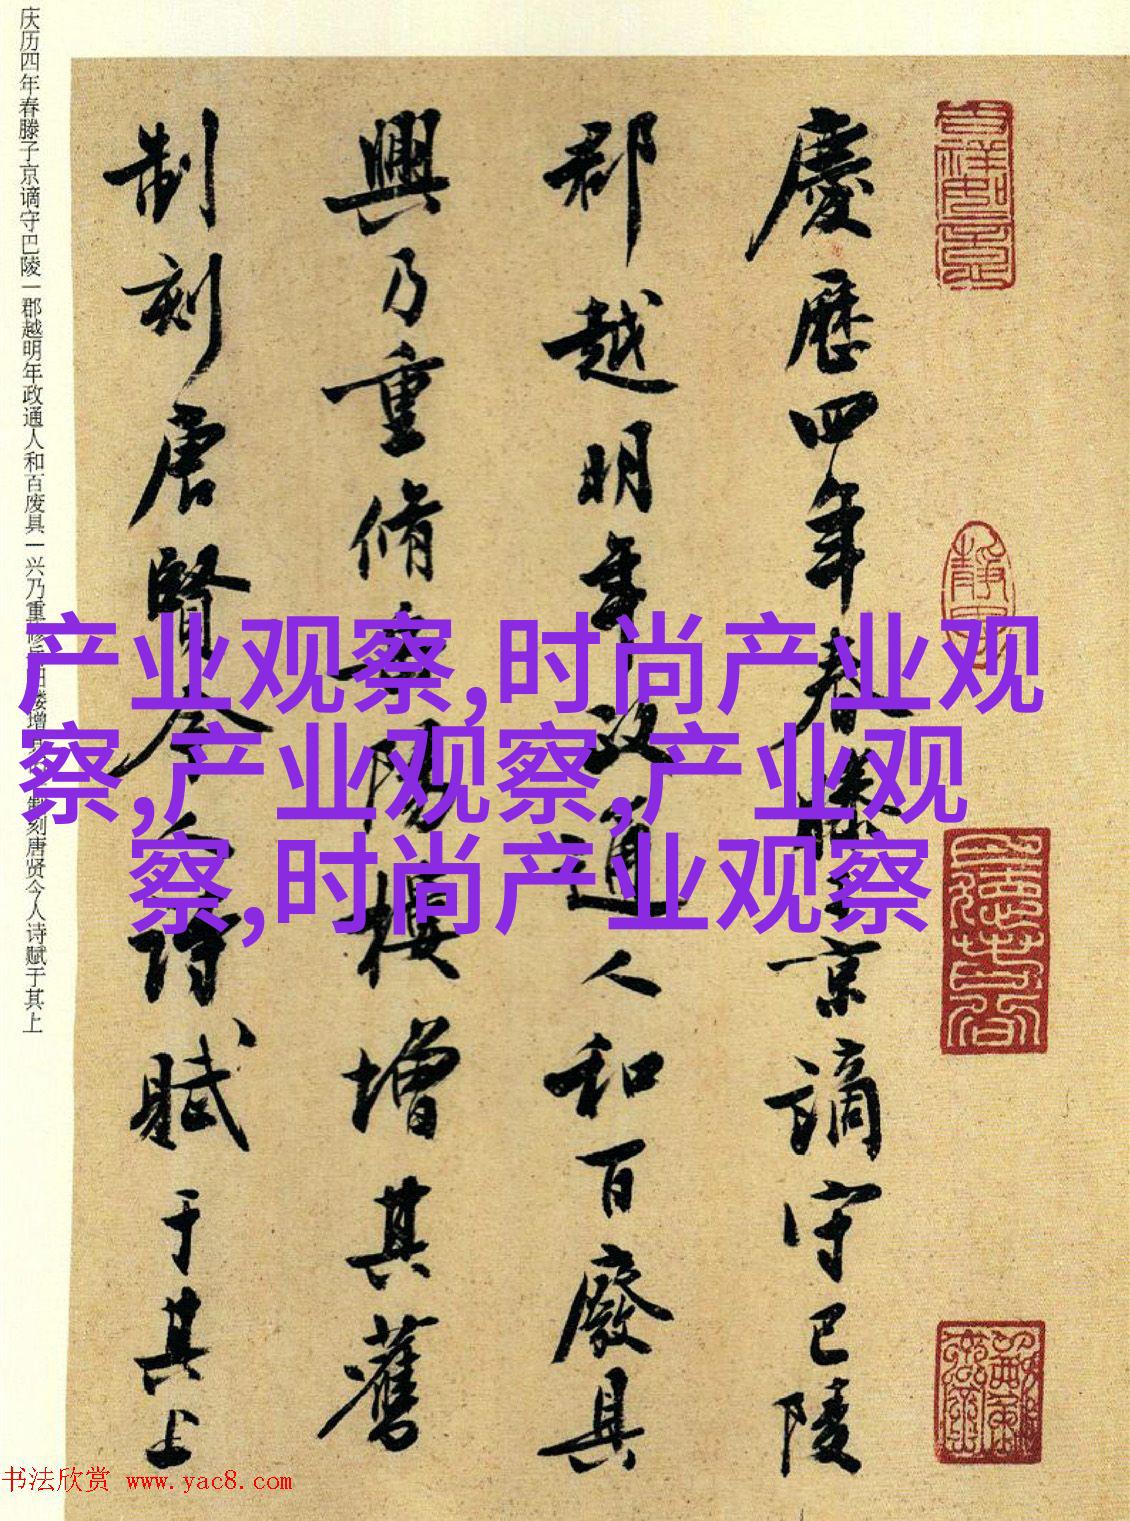 慶歷四年春滕子京謫守巴陵
郡越明年政通人和百廢具
興乃重脩岳陽樓增其舊
制刻唐賢今人詩賦于其上
庆历四年春滕子京谪守巴陵一郡越明年政通人和百废具一兴乃重修岳阳楼增其旧一制刻唐贤今人诗赋于其上
产业观察,时尚产业观
察,产业观察,产业观
察,时尚产业观察
书法欣赏 www.yac8.com